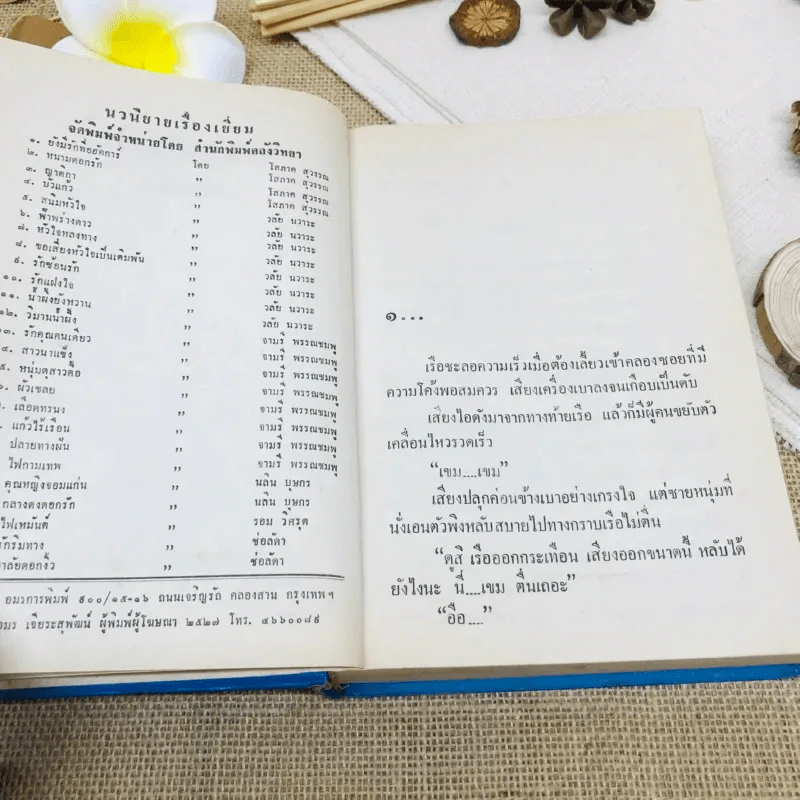 นวนิยายเรื่องเยี่ยม
จัดพิมพ์จำหน่ายโดย สำนักพิมพ์คลังวิทยา
๑. ยังมีรักที่อยู่ดีการ์ โดย โสภาค สุวรรณ
๒. หนามดอกรัก ,, โสภาค สุวรรณ
๓. ญาติกา ,, โสภาค สุวรรณ
๔. บัวแก้ว ,, โสภาค สุวรรณ
๕. สนิมหัวใจ ,, วลัย นวาระ
๖. ฟ้าพร่างดาว ,, วลัย นวาระ
๗. หัวใจหลงทาง ,, วลัย นวาระ
๘. ขอเสี่ยงหัวใจเป็นเดิมพัน ,, วลัย นวาระ
๙. รักซ้อนรัก ,, วลัย นวาระ
๑๐. รักแฝงใจ ,, วลัย นวาระ
๑๑. น้ำผึ้งยังหวาน ,, วลัย นวาระ
๑๒. วิมานน้ำผึ้ง ,, วลัย นวาระ
๑๓. รักคุณคนเดียว ,, จามรี พรรณชมพู
๔. สาวนาแซ็ง ,, จามรี พรรณชมพู
๕. หนุ่มดุสาวดื้อ ,, จามรี พรรณชมพู
๖. ผัวเชลย ,, จามรี พรรณชมพู
๗. เลือดทรนง ,, จามรี พรรณชมพู
. แก้วไร้เรือน ,, จามรี พรรณชมพู
ปลายทางฝัน ,, จามรี พรรณชมพู
ไฟกามเทพ ,, จามรี พรรณชมพู
คุณหญิงจอมแก่น ,, นลิน บุษกร
กลางดงดอกรัก ,, นลิน บุษกร
ไฟเหมันต์ ,, รอม วิศรุต
รักริมทาง ,, ช่อลัดา
มาลัยดอกงิ้ว ,, ช่อลัดา
อมรการพิมพ์ ๙๐๐/๑๕-๑๖ ถนนเจริญรัถ คลองสาน กรุงเทพฯ
อมร เจียระสุพัฒน์ ผู้พิมพ์ผู้โฆษณา ๒๕๒๗ โทร. ๔๖๖๐๐๘๙
๑...
เรือชะลอความเร็วเมื่อต้องเลี้ยวเข้าคลองซอยที่มี
ความโค้งพอสมควร เสียงเครื่องเบาลงจนเกือบเป็นดับ
เสียงไอดังมาจากทางท้ายเรือ แล้วก็มีผู้คนขยับตัว
เคลื่อนไหวรวดเร็ว
“เขม....เขม”
เสียงปลุกค่อนข้างเบาอย่างเกรงใจ แต่ชายหนุ่มที่
นั่งเอนตัวพิงหลับสบายไปทางกราบเรือไม่ตื่น
“ดูสิ เรือออกกระเทือน เสียงออกขนาดนี้ หลับได้
ยังไงนะ นี่....เขม ตื่นเถอะ”
“อือ....”